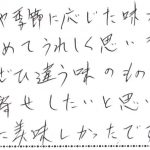 や季節に応じた味
めてうれしく思い
ぜひ違う味のもの
寄せしたいと思い
に美味しかったです